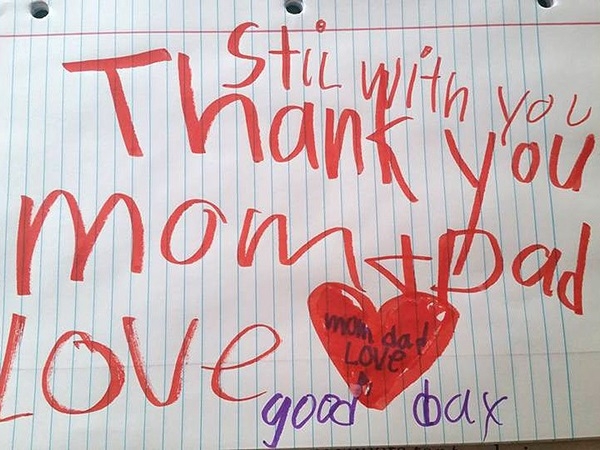 Stil with you
Thank you
mom + Dad
Love
mom dad
LOVE
good bax